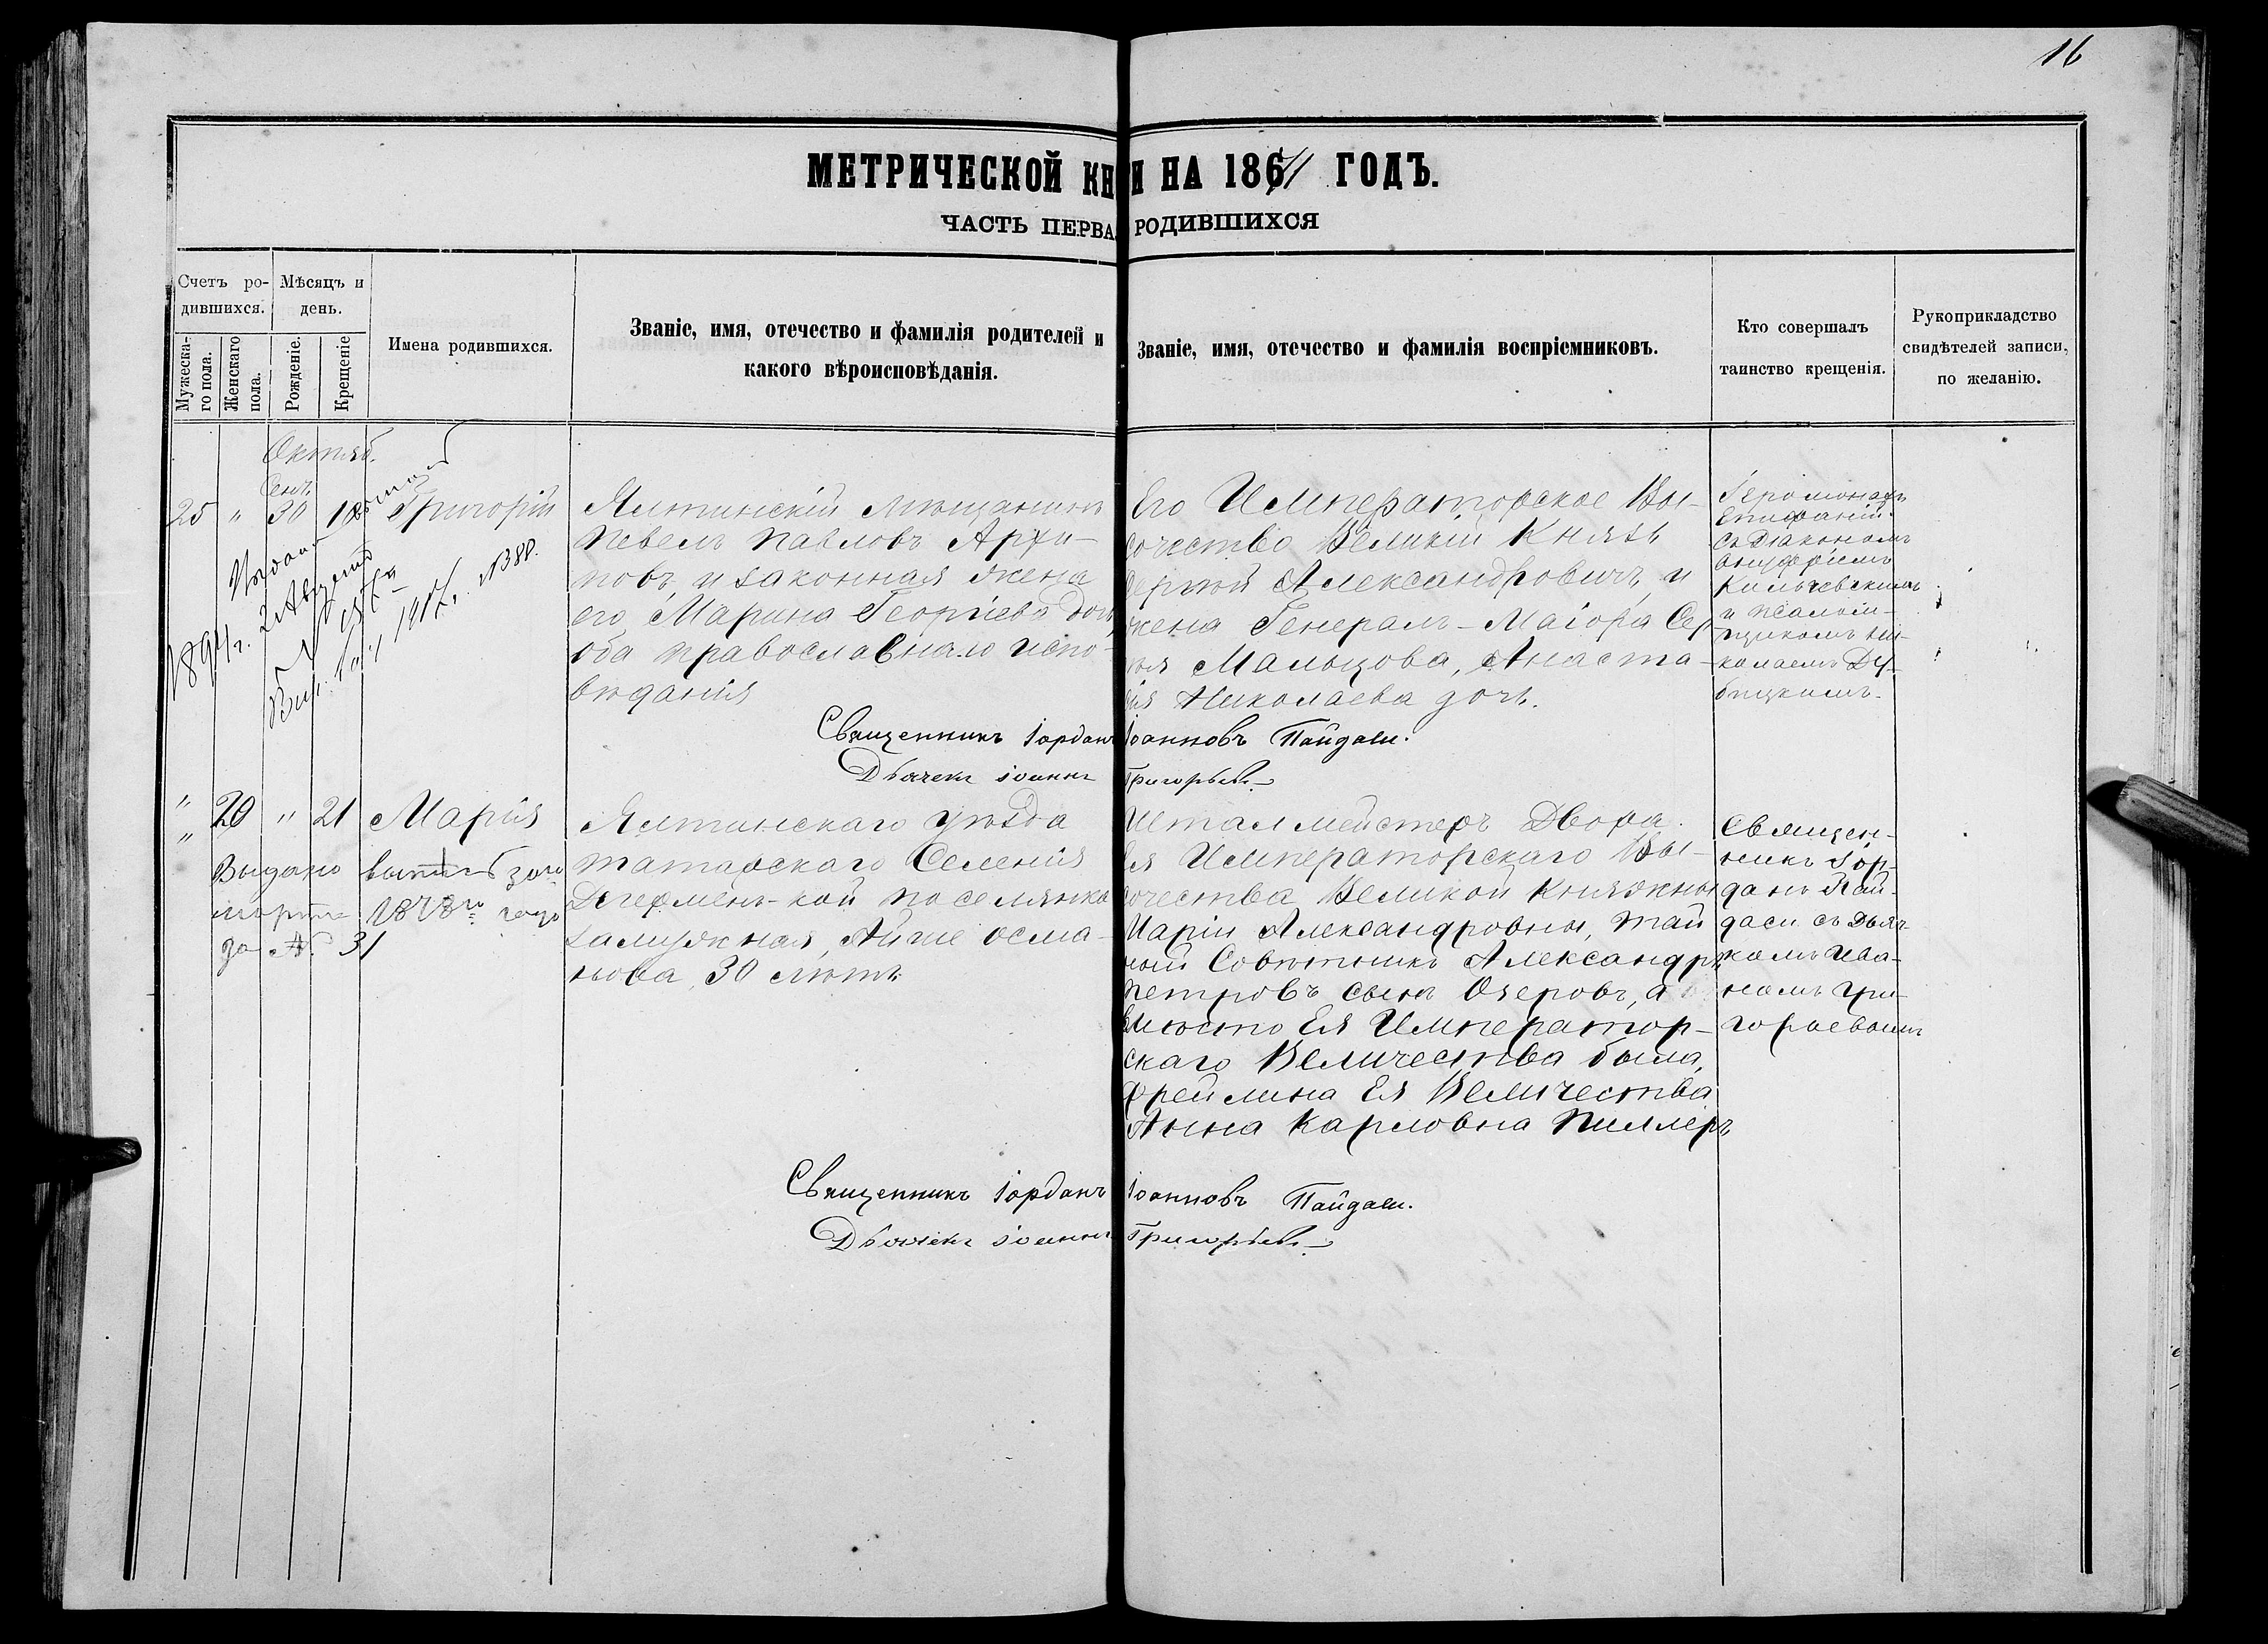 16
МЕТРИЧЕСКОЙ КН И НА 1871 ГОДЪ.
ЧАСТЬ ПЕРВАЯ РОДИВШИХСЯ
Счетъ ро-
дившихся.
Мужеска-
го пола.
Женскаго
пола.
Мѣсяцъ и
день.
Рожденіе.
Крещеніе
Имена родившихся.
Званіе, имя, отечество и фамилія родителей и
какого вѣроисповѣданія.
Званіе, имя, отечество и фамилія воспріемниковъ.
Кто совершалъ
таинство крещенія.
Рукоприкладство
свидѣтелей записи,
по желанію.
Октяб.
Сент.
25 " 30 18 Григорій
1894 г. 2 Августа
1917 г. №38.
Ялтинскій мѣщанинъ
Павелъ Павловъ Архи-
повъ, и законная жена
его, Марина Георгіева дочь,
оба православнаго испо-
вѣданія
Его Императорское Вы-
сочество Великій Князь
Сергій Александровичъ, и
жена Генералъ-Маіора Сер-
гія Мальцова, Анаста-
сія Николаева дочь.
Іеромонахъ
Епифаній
съ Діакономъ
Онуфріемъ
Кильчевскимъ
и псалом-
щикомъ Ни-
колаемъ Ду-
бицкимъ.
Священникъ Іорданъ Іоанновъ Пайдаси.
Дьячекъ Іоаннъ Григорьевъ
" 20 " 21 Марія
"
Выдано
марта 1878го года
за №. 31
Ялтинскаго уѣзда
татарскаго Селенія
Дегермень-кой поселянка
замужная, Айше Осма-
нова, 30 лѣтъ
Шталмейстеръ Двора
Ея Императорскаго Вы-
сочества Великой Княжны
Маріи Александровны, Тай
ный Совѣтникъ Александръ
Петровъ сынъ Озеровъ, а
вмѣсто Ея Император-
скаго Величества была,
фрейлина Ея Величества
Анна Карловна Пиллеръ
Священ-
никъ Іор-
данъ Пай-
даси съ Дьяч-
комъ Іоа-
номъ Гри-
горьевымъ
Священникъ Іорданъ Іоанновъ Пайдаси.
Дьячекъ Іоаннъ Григорьевъ